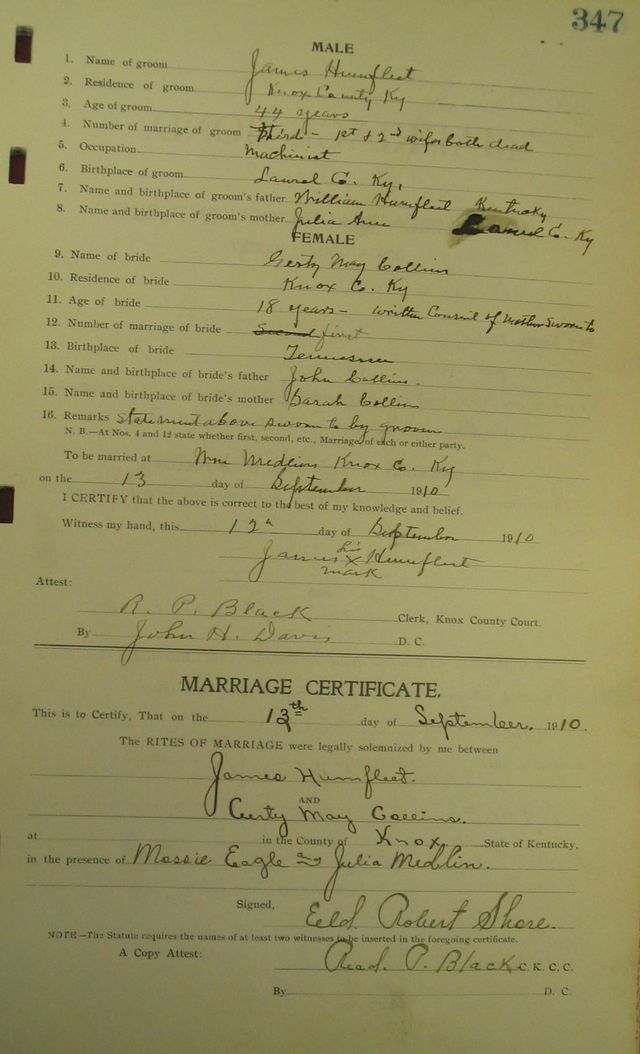 347
MALE
1. Name of groom James Humfleet
2. Residence of groom Knox County Ky
3. Age of groom 44 years
4. Number of marriage of groom Third - 1st & 2nd wifes both dead
5. Occupation Machinist
6. Birthplace of groom Laurel Co. Ky,
7. Name and birthplace of groom's father William Humfleet Kentucky
8. Name and birthplace of groom's mother Julia Ann Laurel Co. Ky
FEMALE
9. Name of bride May Collins
10. Residence of bride Knox Co. Ky
11. Age of bride 18 years - written Consent of Mother Sworn to
12. Number of marriage of bride Second first
13. Birthplace of bride Tennessee
14. Name and birthplace of bride's father John Collins.
15. Name and birthplace of bride's mother Sarah Collins
16. Remarks Statement above sworn to by groom
N. B.—At Nos. 4 and 12 state whether first, second, etc., Marriage of each or either party.
To be married at Wm Medlins Knox Co. Ky
on the 13 day of September 1910
I CERTIFY that the above is correct to the best of my knowledge and belief.
Witness my hand, this 12 day of September 1910
James his x mark Humfleet
Attest:
R. P. Black Clerk, Knox County Court.
By John H. Davis D. C.
MARRIAGE CERTIFICATE.
This is to Certify, That on the 13th day of September. 1910.
The RITES OF MARRIAGE were legally solemnized by me between
James Humfleet.
AND
May Collins.
at in the County of Knox State of Kentucky,
in the presence of Mossie Eagle and Julia Medlin.
Signed,
Eld. Robert Shore.
NOTE—The Statute requires the names of at least two witnesses to be inserted in the foregoing certificate.
A Copy Attest: Read. P. Black C. K. C. C.
By D. C.